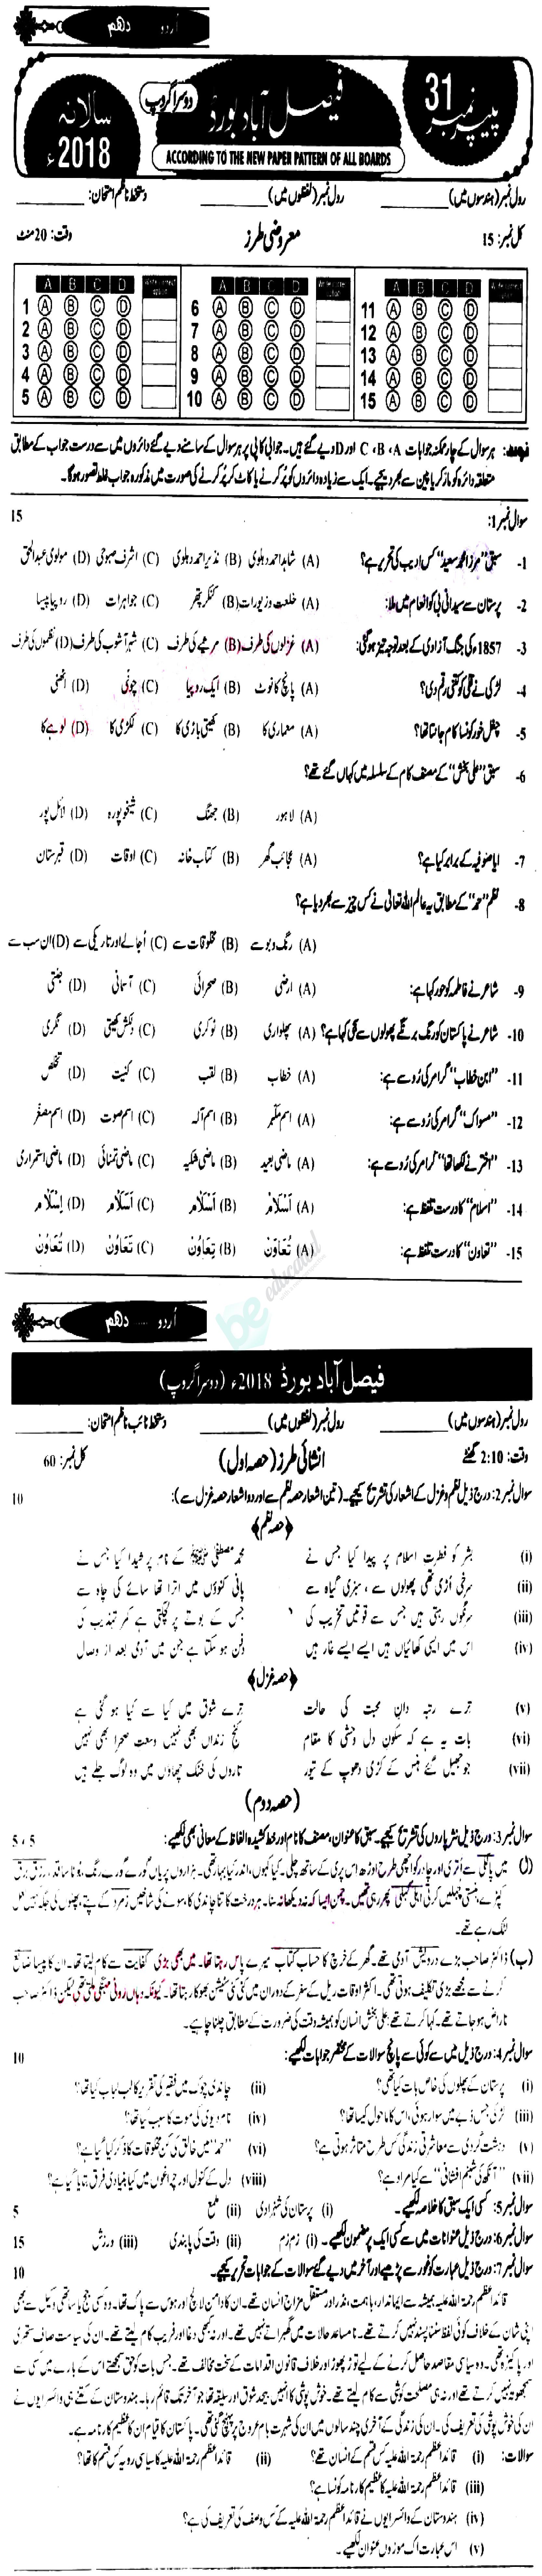 اُردو دہم
پیپر نمبر 31
فیصل آباد بورڈ
دوسرا گروپ
سالانہ 2018ء
ACCORDING TO THE NEW PAPER PATTERN OF ALL BOARDS
رول نمبر (ہندسوں میں) رول نمبر (لفظوں میں) دستخط ناظم امتحان:
کل نمبر: 15 معروضی طرز وقت: 20 منٹ
A B C D
1 A B C D 6 A B C D 11 A B C D
2 A B C D 7 A B C D 12 A B C D
3 A B C D 8 A B C D 13 A B C D
4 A B C D 9 A B C D 14 A B C D
5 A B C D 10 A B C D 15 A B C D
نوٹ: ہر سوال کے چار ممکنہ جوابات C ،B ،A اور D دیے گئے ہیں۔ جوابی کاپی پر ہر سوال کے سامنے دیے گئے دائروں میں سے درست جواب کے مطابق
متعلقہ دائرہ کو مارکر یا پین سے بھر دیجیے۔ ایک سے زیادہ دائروں کو پُر کرنے یا کاٹ کر پُر کرنے کی صورت میں مذکورہ جواب غلط تصور ہوگا۔
سوال نمبر 1: 15
1- سبق "مرزا محمد سعید" کس ادیب کی تحریر ہے؟ (A) شاہد احمد دہلوی (B) نذیر احمد دہلوی (C) اشرف صبوحی (D) مولوی عبدالحق
2- پرستان سے سیدانی بی کو انعام میں ملا: (A) خلعت و زیورات (B) کنکر پتھر (C) جواہرات (D) روپیا پیسا
3- 1857ء کی جنگ آزادی کے بعد توجہ تیز ہوگئی: (A) غزلوں کی طرف (B) مرثیے کی طرف (C) شہر آشوب کی طرف (D) نظموں کی طرف
4- لڑکی نے قلی کو کتنی رقم دی؟ (A) پانچ کا نوٹ (B) ایک روپیا (C) چونی (D) اٹھنی
5- چغل خور کون سا کام جانتا تھا؟ (A) معماری کا (B) کھیتی باڑی کا (C) لکڑی کا (D) لوہے کا
6- سبق "علی بخش" کے مصنف کام کے سلسلہ میں کہاں گئے تھے؟
(A) لاہور (B) جھنگ (C) شیخوپورہ (D) لائل پور
7- ایا صوفیہ کے برابر کیا ہے؟ (A) عجائب گھر (B) کتاب خانہ (C) اوقات (D) قبرستان
8- نظم "حمد" کے مطابق یہ عالم اللہ تعالیٰ نے کس چیز سے بھر دیا ہے؟
(A) رنگ و بو سے (B) مخلوقات سے (C) اُجالے اور تاریکی سے (D) ان سب سے
9- شاعر نے فاطمہ کو حور کہا ہے: (A) ارضی (B) صحرائی (C) آسمانی (D) جنتی
10- شاعر نے پاکستان کو رنگ برنگے پھولوں سے سجی کہا ہے؟ (A) پھلواری (B) ٹوکری (C) دلکش کھیتی (D) نگری
11- "ابن خطاب" گرامر کی رُو سے ہے: (A) خطاب (B) لقب (C) کنیت (D) تخلص
12- "مسواک" گرامر کی رُو سے ہے: (A) اسم مکبر (B) اسم آلہ (C) اسم صوت (D) اسم مصغر
13- "اختر نے لکھا تھا" گرامر کی رُو سے ہے: (A) ماضی بعید (B) ماضی شکیہ (C) ماضی تمنائی (D) ماضی استمراری
14- "اسلام" کا درست تلفظ ہے:
15- "تعاون" کا درست تلفظ ہے:
be educated
اُردو دہم
فیصل آباد بورڈ 2018ء (دوسرا گروپ)
رول نمبر (ہندسوں میں) رول نمبر (لفظوں میں) دستخط نائب ناظم امتحان:
وقت: 2:10 گھنٹے انشائی طرز (حصہ اول) کل نمبر: 60
سوال نمبر 2: درج ذیل نظم و غزل کے اشعار کی تشریح کیجیے۔ (تین اشعار حصہ نظم سے اور دو اشعار حصہ غزل سے): 10
﴿حصہ نظم﴾
(i) بشر کو فطرت اسلام پر پیدا کیا جس نے محمد مصطفیٰ ﷺ کے نام پر شیدا کیا جس نے
(ii) سرخی اُڑی تھی پھولوں سے ، سبزی گیاہ سے پانی کنوؤں میں اترا تھا سائے کی چاہ سے
(iii) سرنگوں رہتی ہیں جس سے قوتیں تخریب کی جس کے بوتے پر لچکتی ہے کمر تہذیب کی
(iv) اس میں ایسی کھائیاں ہیں ایسے ایسے غار ہیں دفن ہو سکتا ہے جن میں آدمی بعد از وصال
﴿حصہ غزل﴾
(v) ترے رتبہ دانِ محبت کی حالت ترے شوق میں کیا سے کیا ہو گئی ہے
(vi) بات یہ ہے کہ سکونِ دل وحشی کا مقام کنج زنداں بھی نہیں وسعت صحرا بھی نہیں
(vii) جو جھیل گئے ہنس کے کڑی دھوپ کے تیور تاروں کی خنک چھاؤں میں وہ لوگ جلے ہیں
(حصہ دوم)
سوال نمبر 3: درج ذیل نثر پاروں کی تشریح کیجیے۔ سبق کا عنوان، مصنف کا نام اور خط کشیدہ الفاظ کے معانی بھی لکھیے: 5 ، 5
(ا) میں پالکی سے اتری اور چادر کو اچھی طرح اوڑھ اس پری کے ساتھ چلی۔ کیا کہوں، اندر کیا بہار تھی۔ ہزاروں پریاں گورے گورے رنگ، بوٹا سا قد، زرق برق
کپڑے، ہنستی چہلیں کرتی اٹھلی پھر رہی تھیں۔ چمن ایسا کہ نہ دیکھا نہ سنا۔ ہر درخت کا تنا چاندی کا، سونے کی شاخیں زمرد کے پتے، پھلوں کی جگہ لعل
لٹک رہے تھے۔
(ب) ڈاکٹر صاحب بڑے درویش آدمی تھے۔ گھر کے خرچ کا حساب کتاب میرے پاس رہتا تھا۔ میں بھی بڑی کفایت سے کام لیتا تھا۔ ان کا پیسا ضائع
کرنے سے مجھے بڑی تکلیف ہوتی تھی۔ اکثر اوقات ریل کے سفر کے دوران میں کئی کئی سٹیشن بھوکا رہتا تھا۔ کیونکہ وہاں روٹی مہنگی ملتی تھی لیکن ڈاکٹر صاحب
ناراض ہو جاتے تھے۔ کہا کرتے تھے: علی بخش انسان کو ہمیشہ وقت کی ضرورت کے مطابق چلنا چاہیے۔
سوال نمبر 4: درج ذیل میں سے کوئی سے پانچ سوالات کے مختصر جوابات لکھیے: 10
(i) پرستان کے پھلوں کی خاص بات کیا تھی؟ (ii) چاندنی چوک میں فقیر کی تقریر کا لب لباب کیا تھا؟
(iii) لڑکی جس ڈبے میں سوار ہوئی، اس کا ماحول کیسا تھا؟ (iv) نام دیو کی موت کا سبب کیا تھا؟
(v) دہشت گردی سے معاشرتی زندگی کس طرح متاثر ہوتی ہے؟ (vi) "حمد" میں خالق کی کن مخلوقات کا ذکر کیا گیا ہے؟
(vii) "آنکھ کی شبنم افشانی" سے کیا مراد ہے؟ (viii) دل کے کنول اور چراغوں میں کیا بنیادی فرق بتایا گیا ہے؟
سوال نمبر 5: کسی ایک سبق کا خلاصہ لکھیے۔ (i) پرستان کی شہزادی (ii) ملمع 5
سوال نمبر 6: درج ذیل عنوانات میں سے کسی ایک پر مضمون لکھیے۔ (i) زم زم (ii) وقت کی پابندی (iii) ورزش 15
سوال نمبر 7: درج ذیل عبارت کو غور سے پڑھیے اور آخر میں دیے گئے سوالات کے جوابات تحریر کیجیے۔ 10
قائداعظم رحمۃ اللہ علیہ ہمیشہ سے ایماندار، باہمت، نڈر اور مستقل مزاج انسان تھے۔ ان کا دامن لالچ اور ہوس سے پاک تھا۔ وہ کسی جج یا ساتھی وکیل سے بھی
اپنی شان کے خلاف کوئی لفظ سننا پسند نہیں کرتے تھے۔ نامساعد حالات میں گھبراتے نہیں تھے۔ اور نہ کبھی دغا اور فریب کام لیتے تھے۔ ان کی سیاست صاف ستھری
اور پاکیزہ تھی۔ وہ سیاسی مقاصد حاصل کرنے کے لیے توڑ پھوڑ اور خلاف قانون اقدامات کے سخت مخالف تھے۔ جس بات کو حق سمجھتے اس کے بارے میں کسی سے
سمجھوتہ نہیں کرتے تھے اور نہ ہی مصلحت کوشی سے کام لیتے تھے۔ خوش پوشی کا انہیں بیحد شوق اور سلیقہ تھا جو آخر تک قائم رہا۔ ہندوستان کے کتنے ہی وائسرائیوں نے
ان کی خوش پوشی کی تعریف کی۔ ان کی زندگی کے آخری چند سالوں میں ان کی شہرت بامِ عروج پر پہنچ گئی تھی۔ پاکستان کا قیام ان کا عظیم کارنامہ ہے۔
سوالات: (i) قائداعظم رحمۃ اللہ علیہ کس قسم کے انسان تھے؟ (ii) قائداعظم رحمۃ اللہ علیہ کا سیاسی رویہ کس قسم کا تھا؟
(iii) قائداعظم رحمۃ اللہ علیہ کا عظیم کارنامہ کون سا ہے؟
(iv) ہندوستان کے وائسرایوں نے قائداعظم رحمۃ اللہ علیہ کے کس وصف کی تعریف کی ہے؟
(v) اس عبارت اک موزوں عنوان لکھیے۔